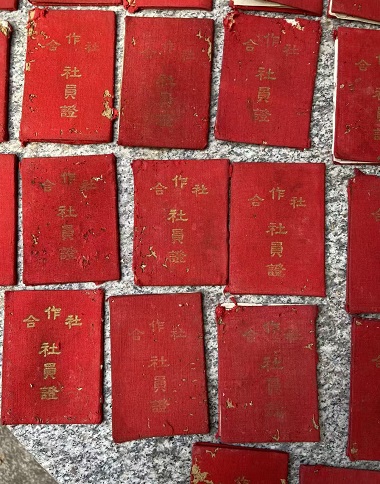 合作社
社員證
合作社
社員證
合作社
社員證
合作社
社員證
合作社
社員證
合作社
社員證
合作社
社員證
合作社
社員證
合作社
社員證